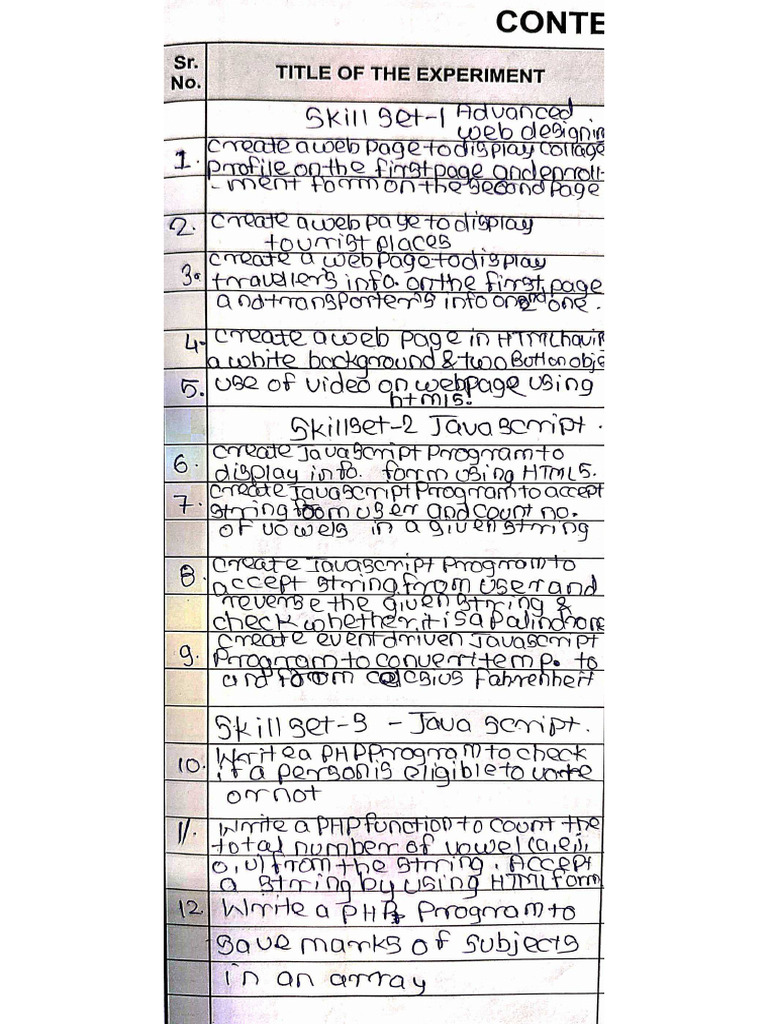 CONTE
Sr.
No.
TITLE OF THE EXPERIMENT
Skill Set-1 Advanced
web designin
1. Create a web page to display collage
profile on the first page and enroll
-ment form on the second page
2. Create a web page to display
tourist places
3. Create a web page to display
traveller's info. on the first page
and transporter's info on 2nd one.
4- Create a web page in HTML havin
a white background & two Button obje
5. use of video on webpage using
html5.
Skillset-2 JavaScript.
6. Create JavaScript Program to
display info. form using HTML5.
7. Create JavaScript Program to accept
string from user and count no.
of vowels in a given string
8. Create JavaScript Program to
accept string from user and
reverse the given string &
check whether it is a palindrome
9. Create event driven JavaScript
Program to convert temp. to
and from Celcsius Fahrenheit
Skill set-3 - Java script.
10. Write a PHP Program to check
if a person is eligible to vote
or not
11. Write a PHP function to count the
total number of vowel (a,e,i,
o,u) from the string. Accept
a string by using HTML form
12 Write a PHP Program to
save marks of subjects
in an array